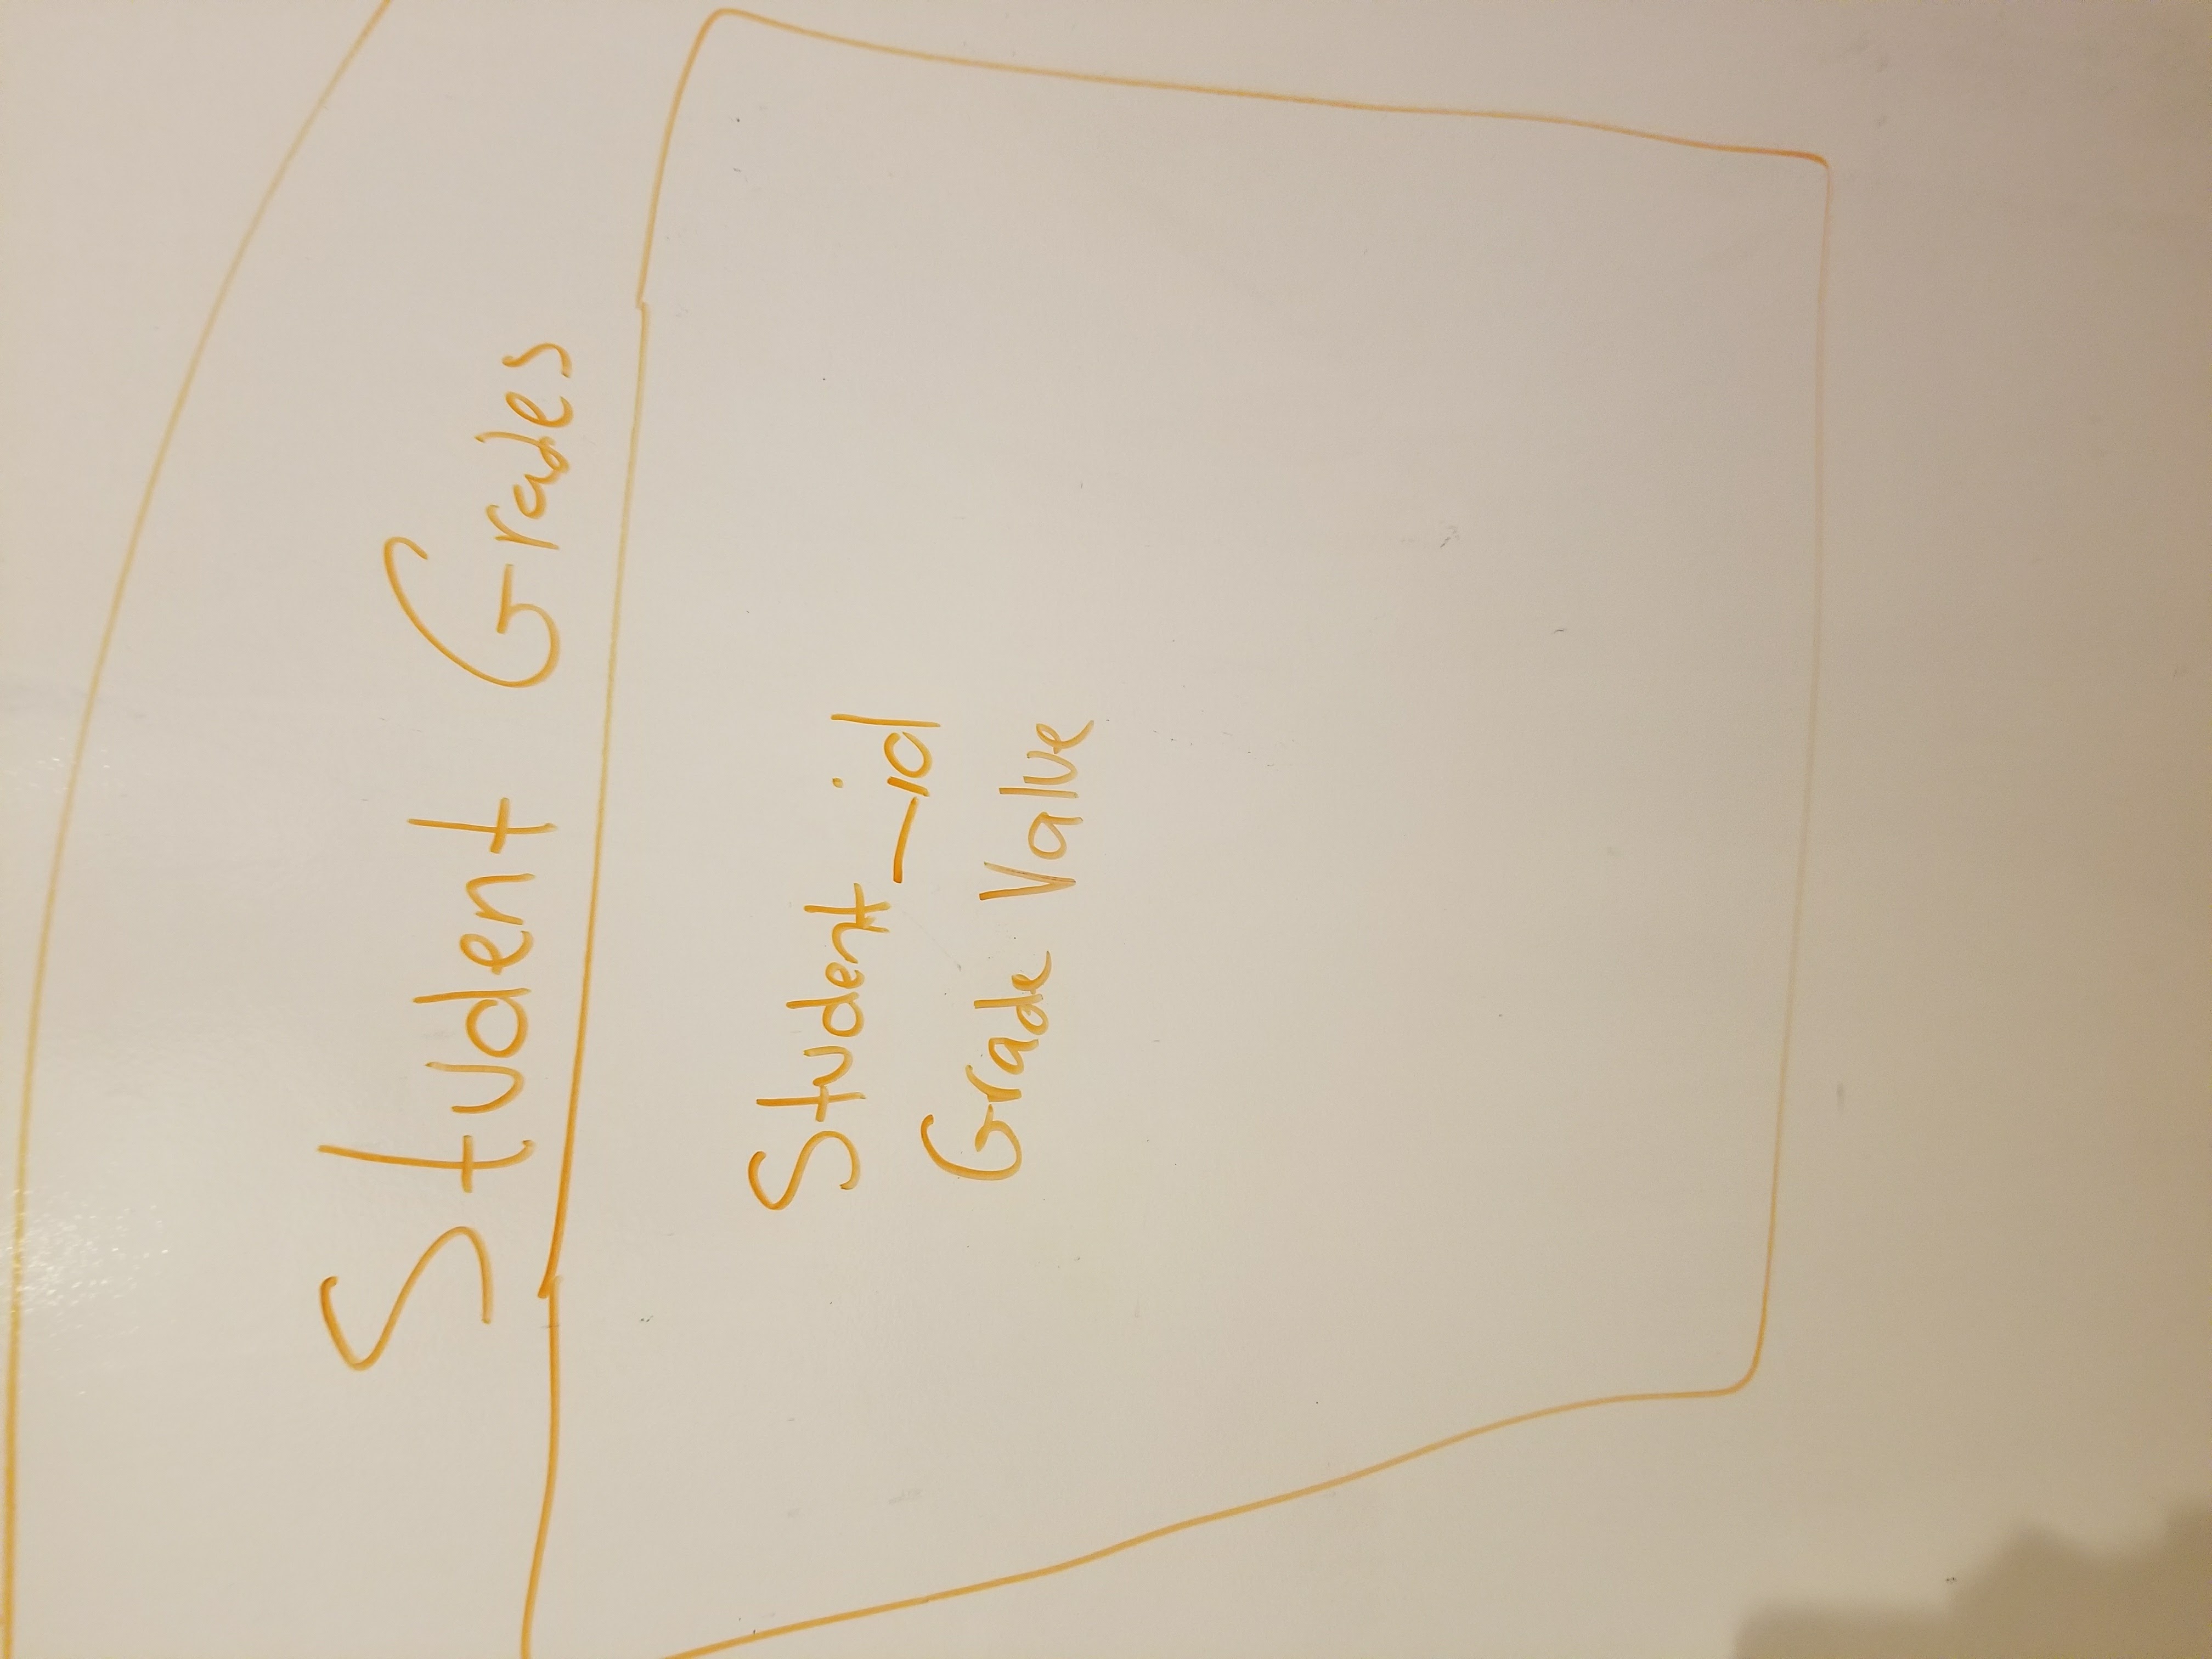 Student Grades
Student_id
Grade Value